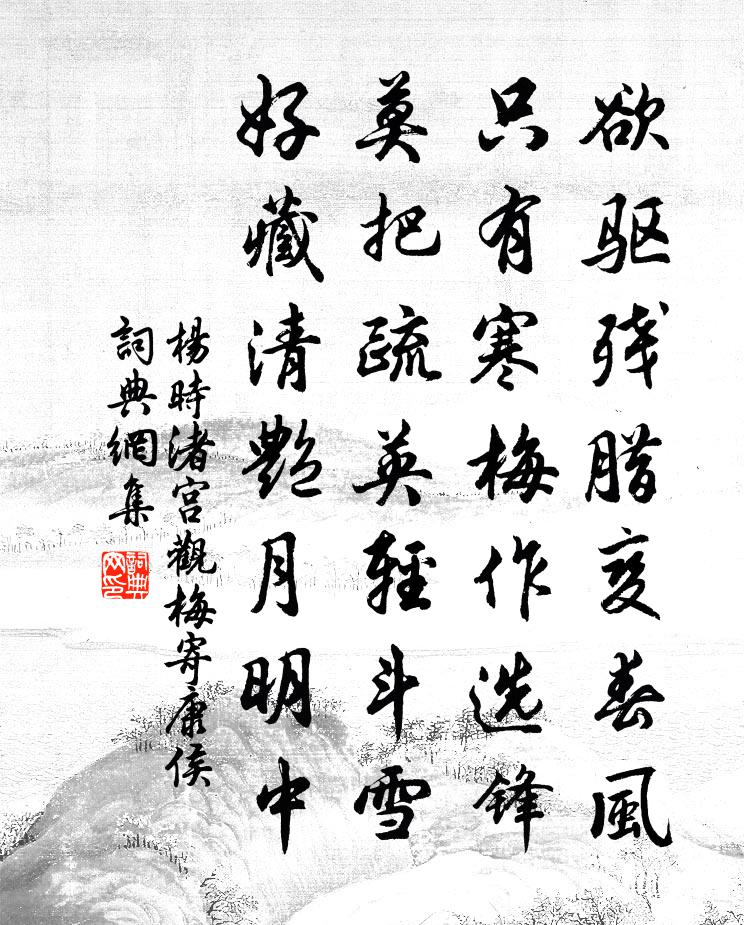 欲驱残腊变春風
只有寒梅作选锋
莫把疏英輕斗雪
好藏清艶月明中
楊時渚宮觀梅寄康侯
詞典網集
詞典网印